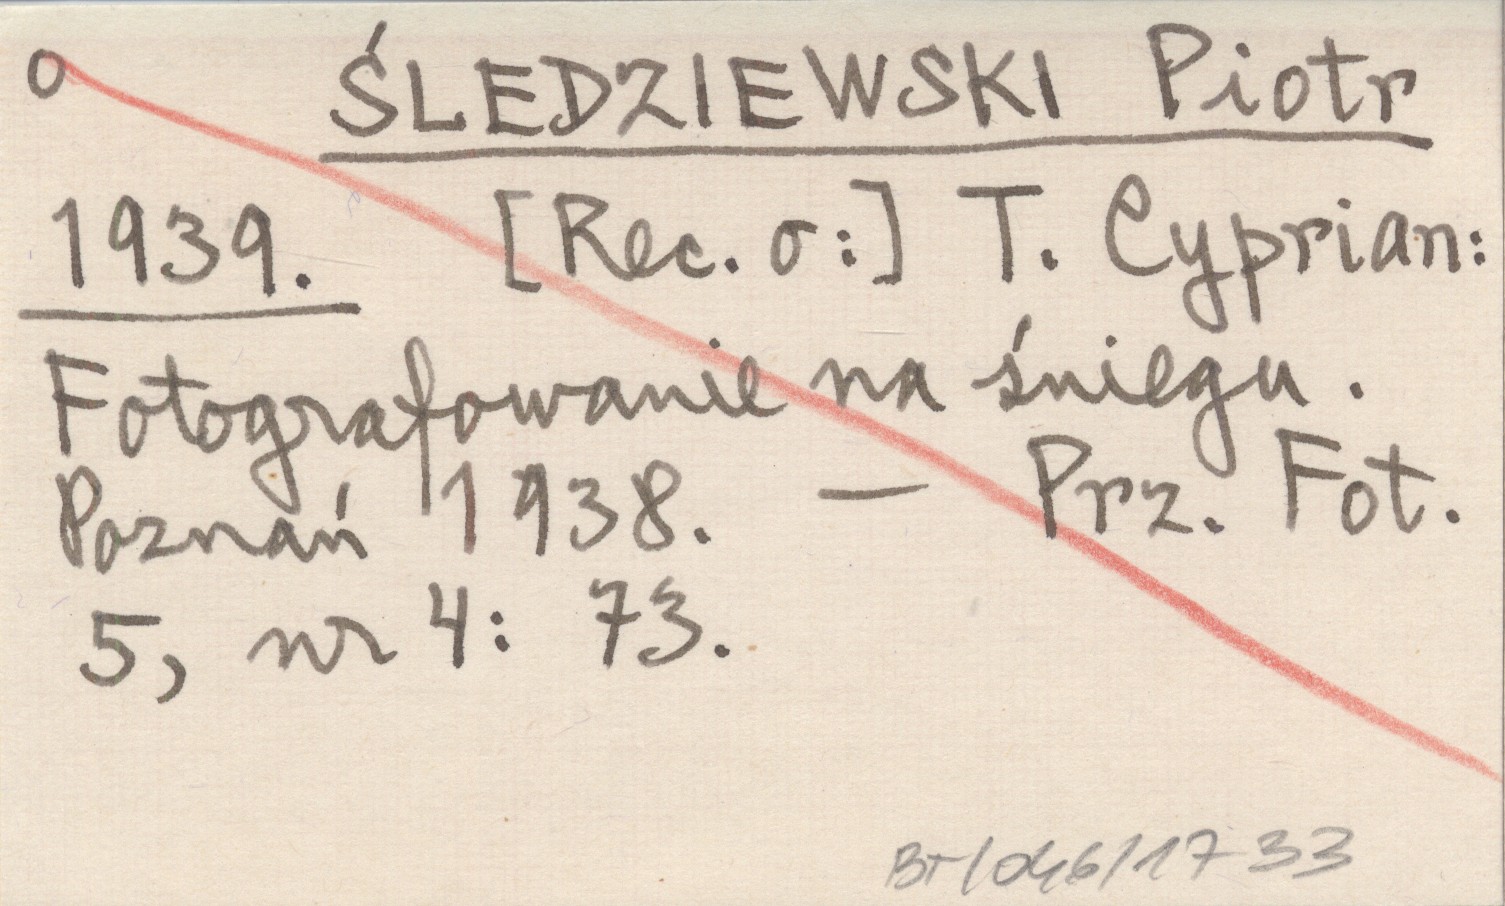 o ŚLEDZIEWSKI Piotr
1939. [Rec. o:] T. Cyprian:
Fotografowanie na śniegu.
Poznań 1938. — Prz. Fot.
5, nr 4: 73.
BT/046/1733